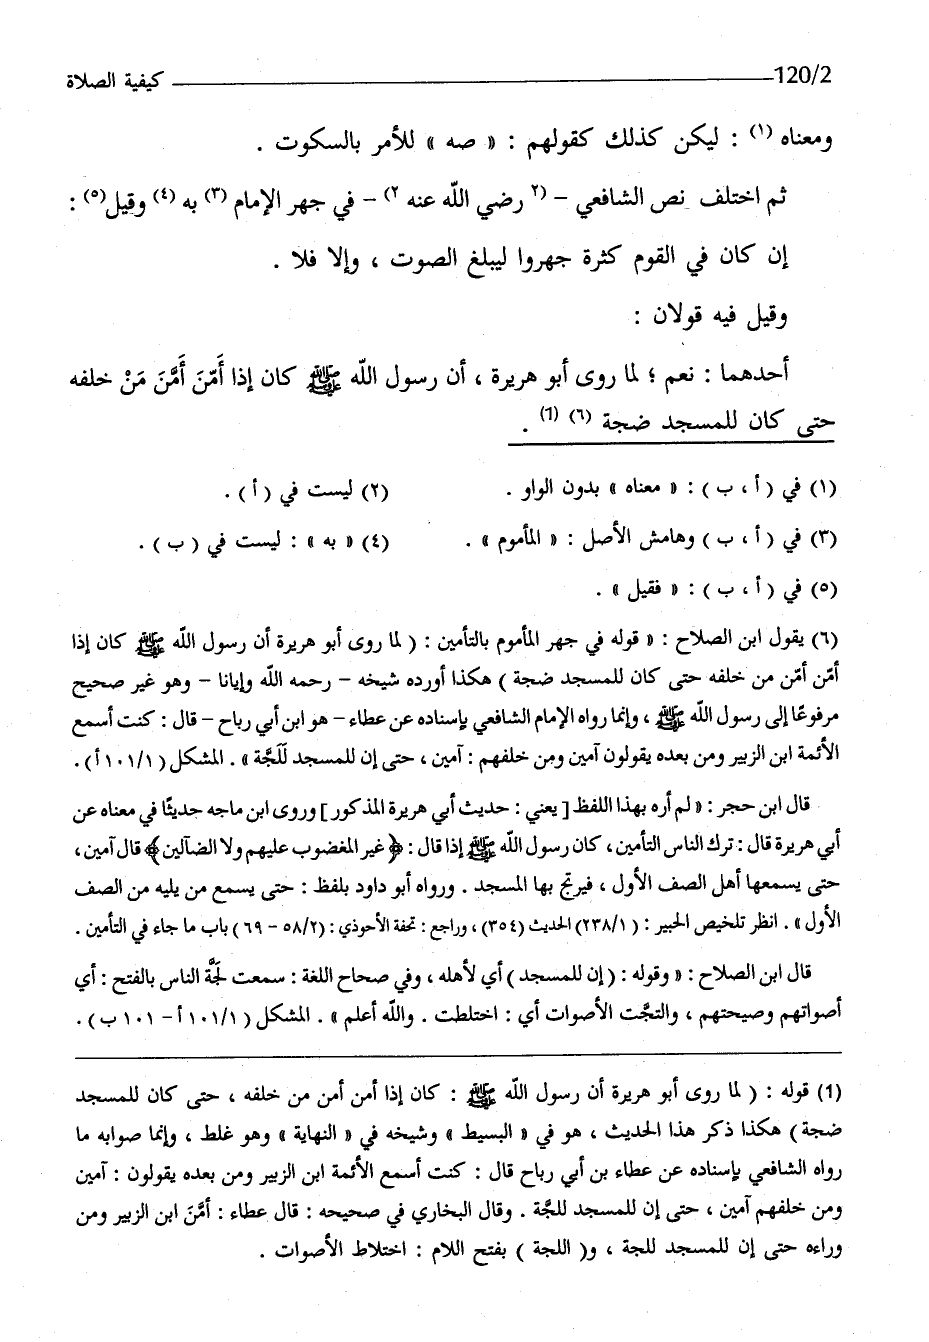 120/2 كيفية الصلاة
ومعناه (١) : ليكن كذلك كقولهم : « صه » للأمر بالسكوت .
ثم اختلف نص الشافعي – (٢ رضي اللّه عنه ٢) – في جهر الإمام (٣) به (٤) وقيل(٥) :
إن كان في القوم كثرة جهروا ليبلغ الصوت ، وإلا فلا .
وقيل فيه قولان :
أحدهما : نعم ؛ لما روى أبو هريرة ، أن رسول اللّه ﷺ كان إذا أَمّنَ أَمَّنَ مَنْ خلفه
حتى كان للمسجد ضجة (٦) (1) .
(١) في ( أ ، ب ) : « معناه » بدون الواو . (٢) ليست في ( أ ) .
(٣) في ( أ ، ب ) وهامش الأصل : « المأموم » . (٤) « به » : ليست في ( ب ) .
(٥) في ( أ ، ب ) : « فقيل » .
(٦) يقول ابن الصلاح : « قوله في جهر المأموم بالتأمين : ( لما روى أبو هريرة أن رسول اللّه ﷺ كان إذا
أمّن أمّن من خلفه حتى كان للمسجد ضجة ) هكذا أورده شيخه – رحمه اللّه وإيانا – وهو غير صحيح
مرفوعًا إلى رسول اللّه ﷺ ، وإنما رواه الإمام الشافعي بإسناده عن عطاء – هو ابن أبي رباح – قال : كنت أسمع
الأئمة ابن الزبير ومن بعده يقولون آمين ومن خلفهم : آمين ، حتى إن للمسجد لَلَجَّة » . المشكل ( ١٠١/١ أ ) .
قال ابن حجر : « لم أره بهذا اللفظ [ يعني : حديث أبي هريرة المذكور ] وروى ابن ماجه حديثًا في معناه عن
أبي هريرة قال : ترك الناس التأمين ، كان رسول اللّه ﷺ إذا قال : ﴿ غير المغضوب عليهم ولا الضآلين ﴾ قال آمين ،
حتى يسمعها أهل الصف الأول ، فيرتج بها المسجد . ورواه أبو داود بلفظ : حتى يسمع من يليه من الصف
الأول » . انظر تلخيص الحبير : ( ٢٣٨/١) الحديث (٣٥٤) ، وراجع : تحفة الأحوذي : (٥٨/٢ – ٦٩ ) باب ما جاء في التأمين .
قال ابن الصلاح : « وقوله : ( إن للمسجد ) أي لأهله ، وفي صحاح اللغة : سمعت لَجَّة الناس بالفتح : أي
أصواتهم وصيحتهم ، والتجَّت الأصوات أي : اختلطت . واللّه أعلم » . المشكل ( ١٠١/١ أ – ١٠١ ب ) .
(1) قوله : ( لما روى أبو هريرة أن رسول اللّه ﷺ : كان إذا أمن أمن من خلفه ، حتى كان للمسجد
ضجة ) هكذا ذكر هذا الحديث ، هو في « البسيط » وشيخه في « النهاية » وهو غلط ، وإنما صوابه ما
رواه الشافعي بإسناده عن عطاء بن أبي رباح قال : كنت أسمع الأئمة ابن الزبير ومن بعده يقولون : آمين
ومن خلفهم آمين ، حتى إن للمسجد للجَّة . وقال البخاري في صحيحه : قال عطاء : أمَّنَ ابن الزبير ومن
وراءه حتى إن للمسجد للجة ، و( اللجة ) بفتح اللام : اختلاط الأصوات .